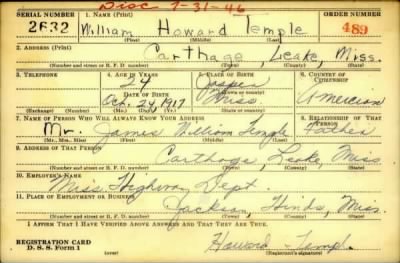 Disc 7-31-46
SERIAL NUMBER 1. Name (Print) ORDER NUMBER
2632 William Howard Temple 489
(First) (Middle) (Last)
2. Address (Print)
Carthage, Leake, Miss.
(Number and street or R. F. D. number) (Town) (County) (State)
3. Telephone 4. Age in Years 5. Place of Birth 6. Country of Citizenship
24 Miss
Date of Birth
Oct. 24, 1917 American
(Exchange) (Number) (Mo.) (Day) (Yr.) (State or country)
7. Name of Person Who Will Always Know Your Address 8. Relationship of That Person
Mr. James William Temple Father
(Mr., Mrs., Miss) (First) (Middle) (Last)
9. Address of That Person
Carthage, Leake, Miss
(Number and street or R. F. D. number) (Town) (County) (State)
10. Employer's Name
Miss. Highway Dept.
11. Place of Employment or Business
Jackson, Hinds, Miss.
(Number and street or R. F. D. number) (Town) (County) (State)
I Affirm That I Have Verified Above Answers and That They Are True.
REGISTRATION CARD
D. S. S. Form 1
(over)
Howard Temple
(Registrant's signature)